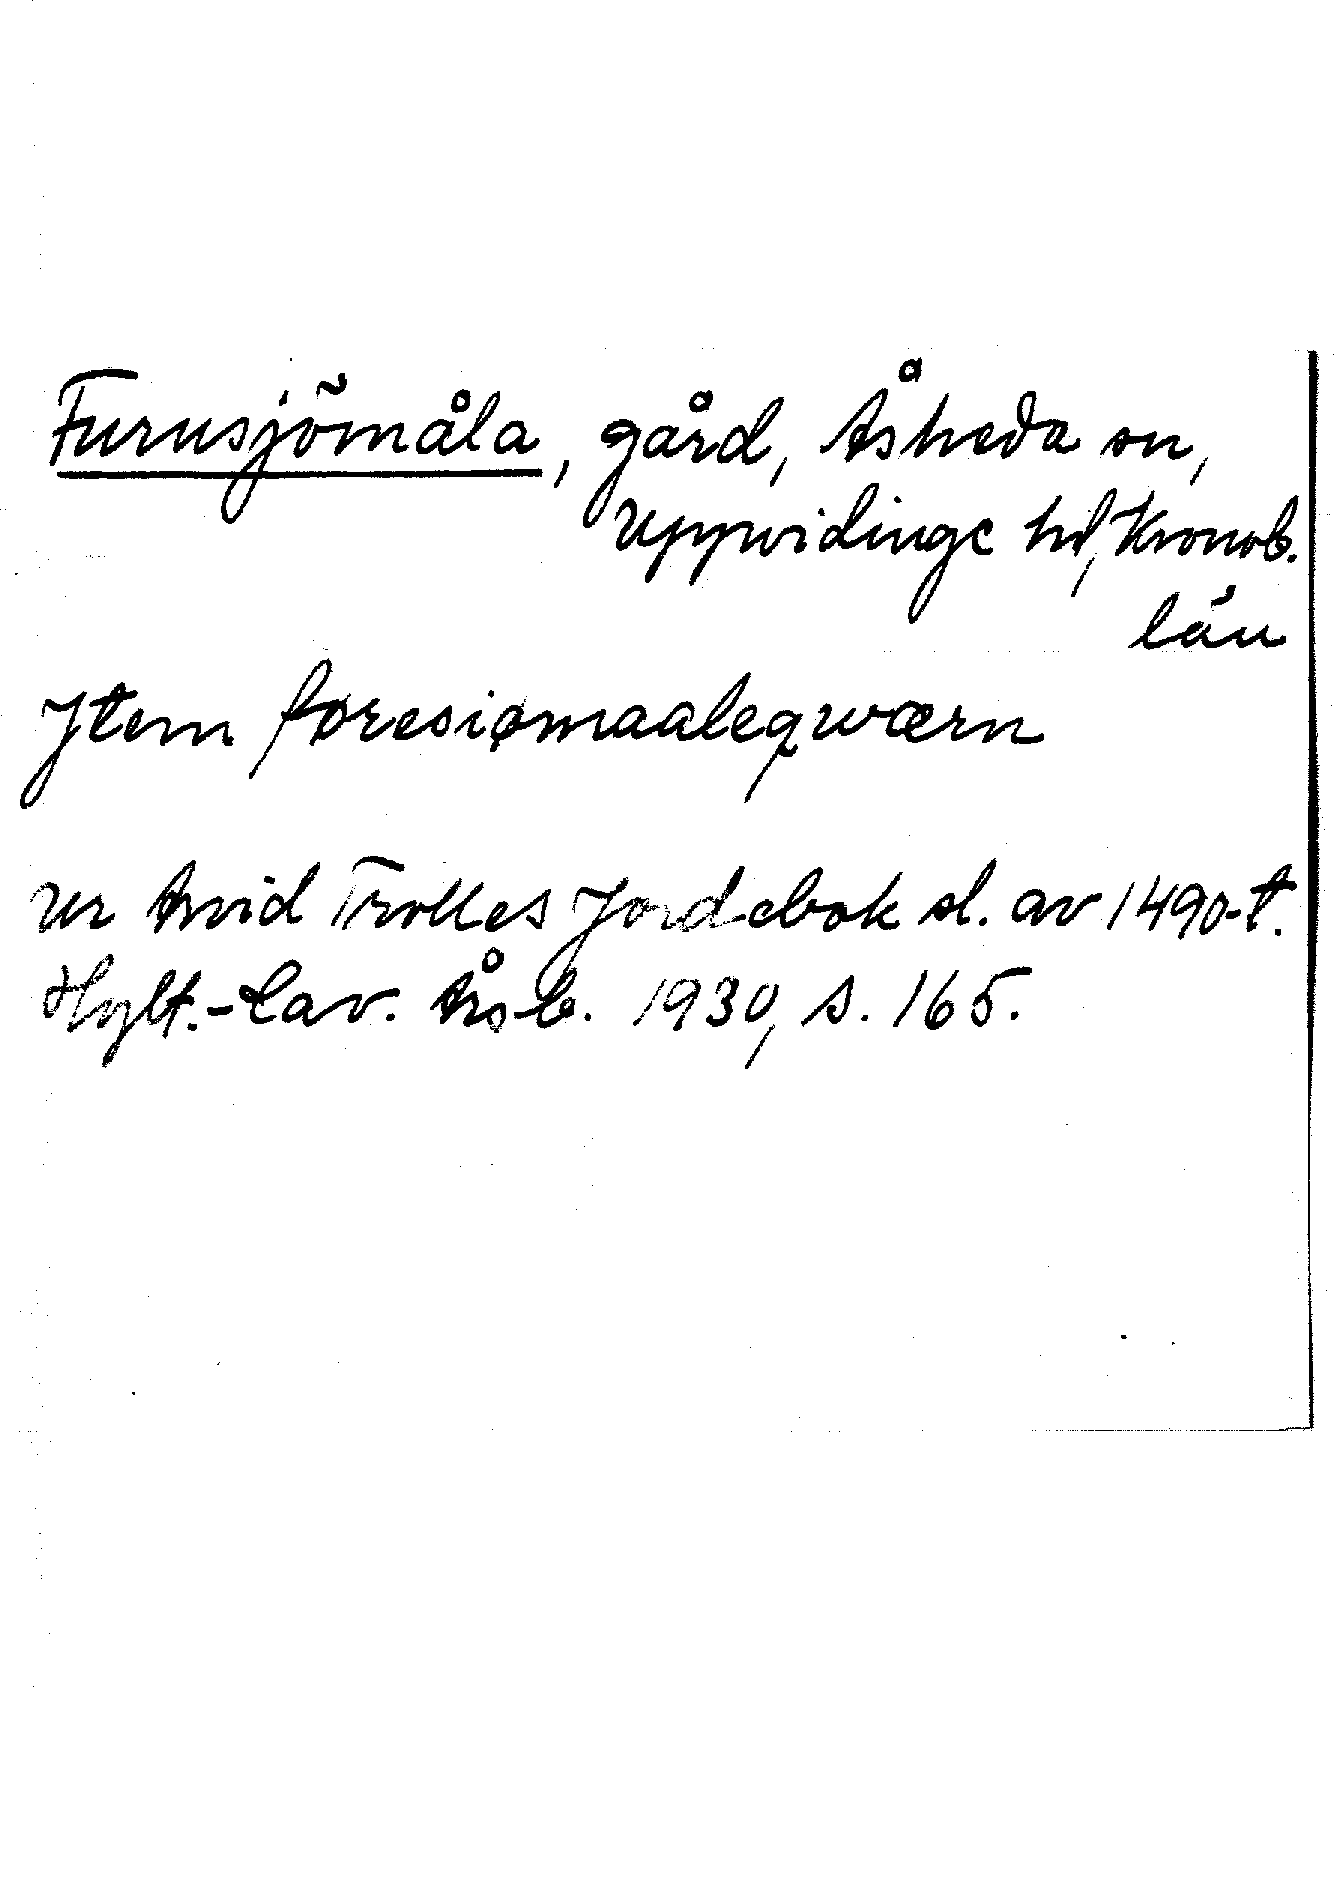 Furusjömåla, gård, Åsheda sn,
Uppvidinge hd, Kronob.
län
Jtemføresiømaaleqwærn
Ur Arvid Trolles Jordebok sl. av 1490-t.
Hylt.-Cav. Årsb. 1930, s. 165.